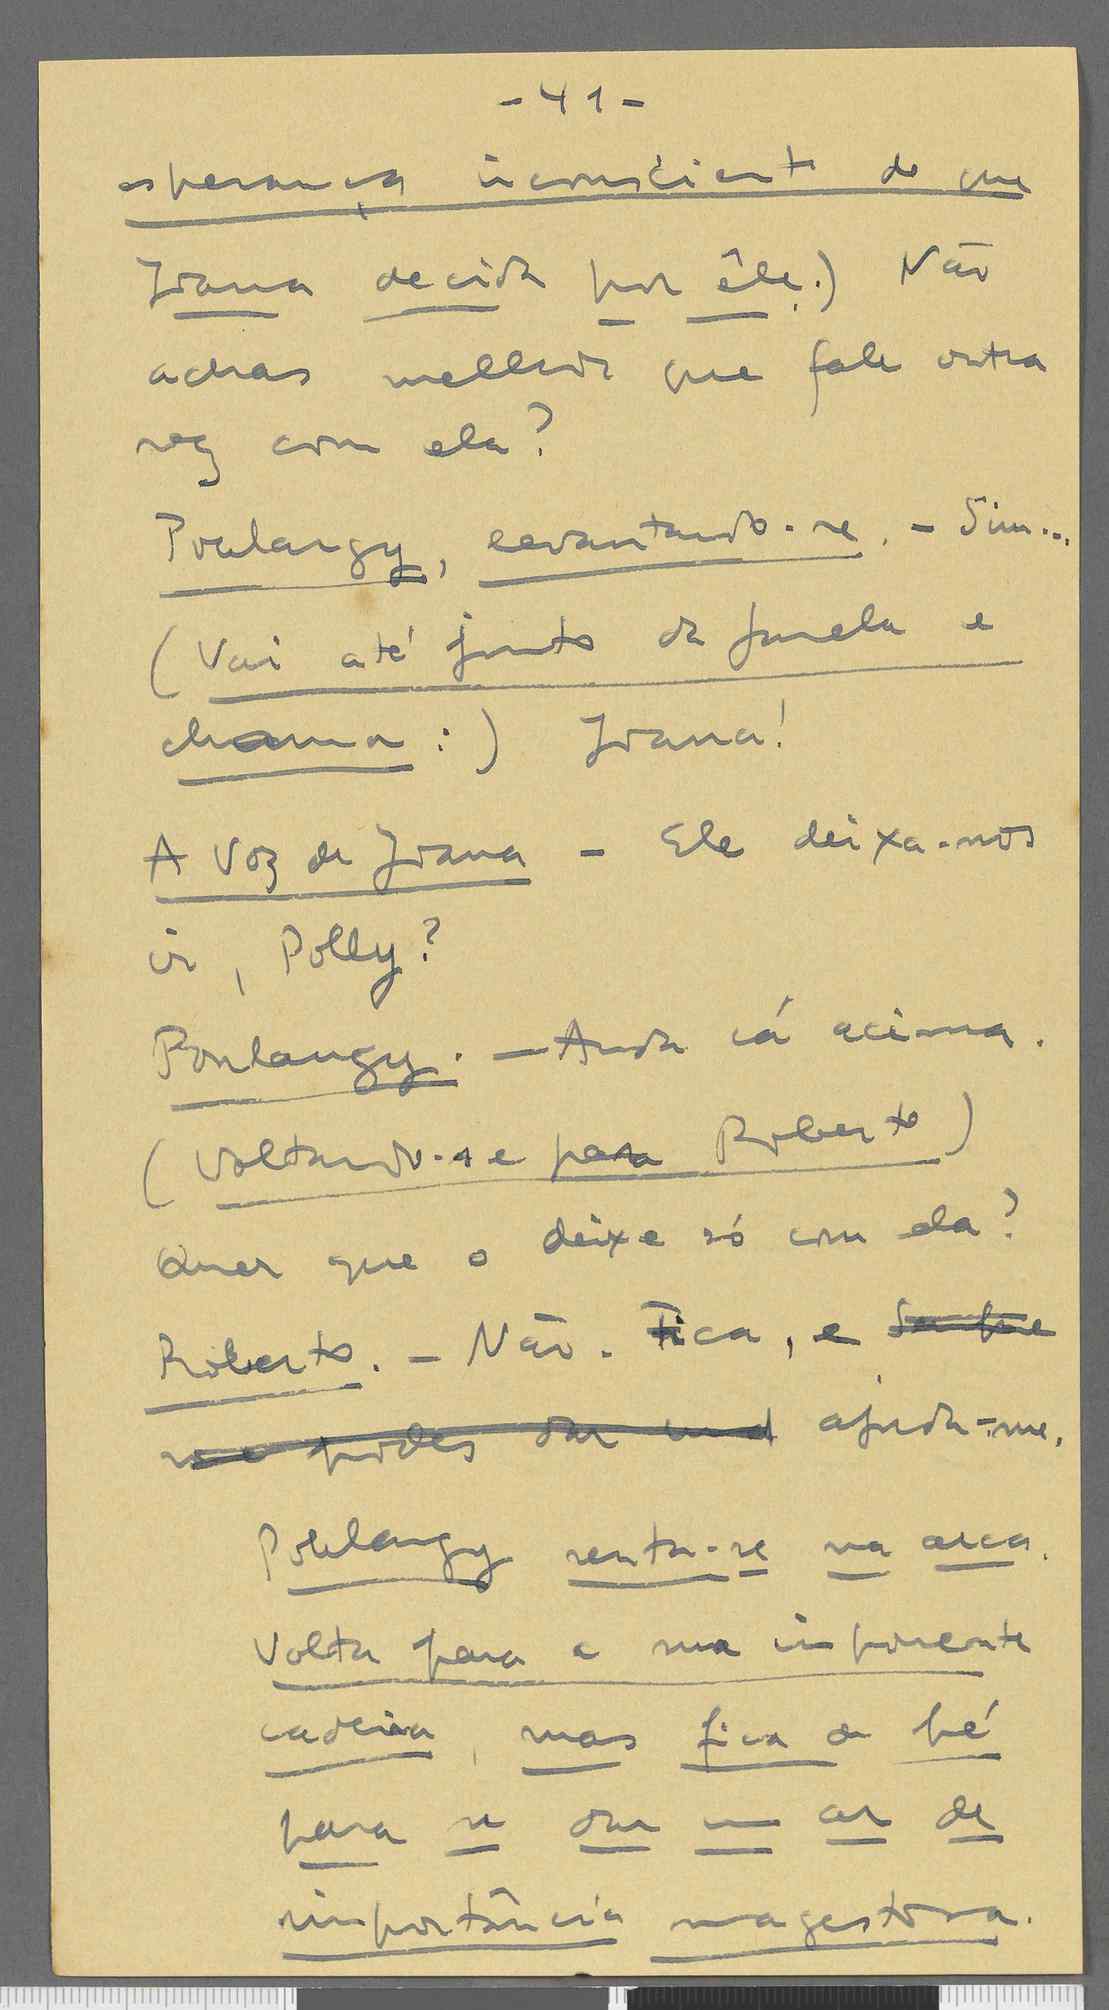 - 41 -
esperança inconsciente de que
Joana decida por êle.) Não
achas melhor que fale outra
vez com ela?
Poulangy, levantando-se. - Sim...
(Vai até junto da janela e
chama:) Joana!
A Voz de Joana - Ele deixa-nos
ir, Polly?
Poulangy. - Anda cá acima.
(Voltando-se para Roberto)
Quer que o deixe só com ela?
Roberto. - Não. Fica, e
me podes dar ajuda-me.
Poulangy senta-se na arca.
Volta para a sua imponente
cadeira, mas fica de pé
para se dar um ar de
importância magestosa.